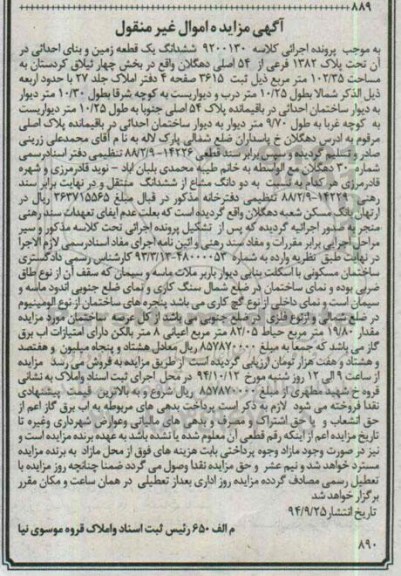 ۸۸۹
آگهی مزایده اموال غیر منقول
به موجب پرونده اجرائی کلاسه ۹۲۰۰۱۳۰ ششدانگ یک قطعه زمین و بنای احداثی در
آن تحت پلاک ۱۳۸۲ فرعی از ۵۴ اصلی دهگلان واقع در بخش چهار ثیلاق کردستان به
مساحت ۱۰۲/۳۵ متر مربع ذیل ثبت ۳۶۱۵ صفحه ۴ دفتر املاک جلد ۲۷ با حدود اربعه
ذیل الذکر شمالا بطول ۱۰/۲۵ متر درب و دیواریست به کوچه شرقا بطول ۱۰/۳۰ متر دیوار
به دیوار ساختمان احداثی در باقیمانده پلاک ۵۴ اصلی جنوبا به طول ۱۰/۲۵ متر دیواریست
به کوچه غربا به طول ۹/۷۰ متر دیوار به دیوار ساختمان احداثی در باقیمانده پلاک اصلی
مرقوم به آدرس دهگلان خ پاسداران ضلع شمالی پارک لاله به نام آقای محمدعلی زرینی
صادر و تسلیم گردیده و سپس برابر سند قطعی ۱۴۲۲۶-۸۸/۲/۹ تنظیمی دفتر اسنادرسمی
شماره ۳۰ دهگلان مع الواسطه به خانم طیبه محمدی بلبان آباد - نوید قادرمرزی و شهره
قادرمرزی هر کدام به نسبت به دو دانگ مشاع از ششدانگ منتقل و در نهایت برابر سند
رهنی ۱۴۲۲۹-۸۸/۲/۹ تنظیمی دفترخانه مذکور در قبال مبلغ ۳۶۳۷۱۵۵۶۵ ریال در
ارتهان بانک مسکن شعبه دهگلان واقع گردیده است که بعلت عدم ایفای تعهدات سند رهنی
منجر به صدور اجرائیه گردیده که پس از تشکیل پرونده اجرائی تحت کلاسه مذکور و سیر
مراحل اجرایی برابر مقررات و مفاد سند رهنی و آئین نامه اجرای مفاد اسنادرسمی لازم الاجرا
در نهایت طبق نظریه وارده به شماره ۴۸۰۰۰۰۵۳-۹۳/۳/۱۳ کارشناس رسمی دادگستری
ساختمان مسکونی با اسکلت بنایی دیوار باربر ملات ماسه و سیمان که سقف آن از نوع طاق
ضربی بوده و نمای ساختمان در ضلع شمال سنگ کاری و نمای ضلع جنوبی اندود ماسه و
سیمان است و نمای داخلی از نوع گچ کاری می باشد پنجره های ساختمان از نوع آلومینیوم
در ضلع شمالی و از نوع فلزی در ضلع جنوبی می باشد از کل عرصه ساختمان مورد مزایده
مقدار ۱۹/۸۰ متر مربع حیاط ۸۲/۰۵ متر مربع اعیانی ۸ متر بالکن دارای امتیازات آب برق
گاز می باشد که جمعا به مبلغ ۸۵۷۸۷۰۰۰۰ ریال معادل هشتاد و پنجاه میلیون و هفتصد
و هشتاد و هفت هزار تومان ارزیابی گردیده است از طریق مزایده به فروش می رسد مزایده
از ساعت ۹ الی ۱۲ روز شنبه مورخ ۹۴/۱۰/۱۲ در محل اجرای ثبت اسناد واملاک به نشانی
قروه خ شهید مطهری از مبلغ ۸۵۷۸۷۰۰۰۰ ریال شروع و به بالاترین قیمت پیشنهادی
نقدا فروخته می شود لازم به ذکر است پرداخت بدهی های مربوطه به آب برق گاز اعم از
حق انشعاب و یا حق اشتراک و مصرف و بدهی های مالیاتی وعوارض شهرداری وغیره تا
تاریخ مزایده اعم از اینکه رقم قطعی آن معلوم شده یا نشده باشد به عهده برنده مزایده است و
نیز در صورت وجود مازاد وجوه پرداختی بابت هزینه های فوق از محل مازاد به برنده مزایده
مسترد خواهد شد و نیم عشر و حق مزایده نقدا وصول می گردد ضمنا چنانچه روز مزایده با
تعطیل رسمی مصادف گردده مزایده روز اداری بعداز تعطیلی در همان ساعت و مکان مقرر
برگزار خواهد شد
تاریخ انتشار ۹۴/۹/۲۵
م الف ۶۵۰ رئیس ثبت اسناد واملاک قروه موسوی نیا
۸۹۰